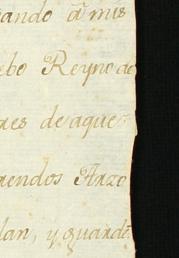 ando â mis
ebo Reyno de
res de aque
rendos Arzo
lan, y guarde